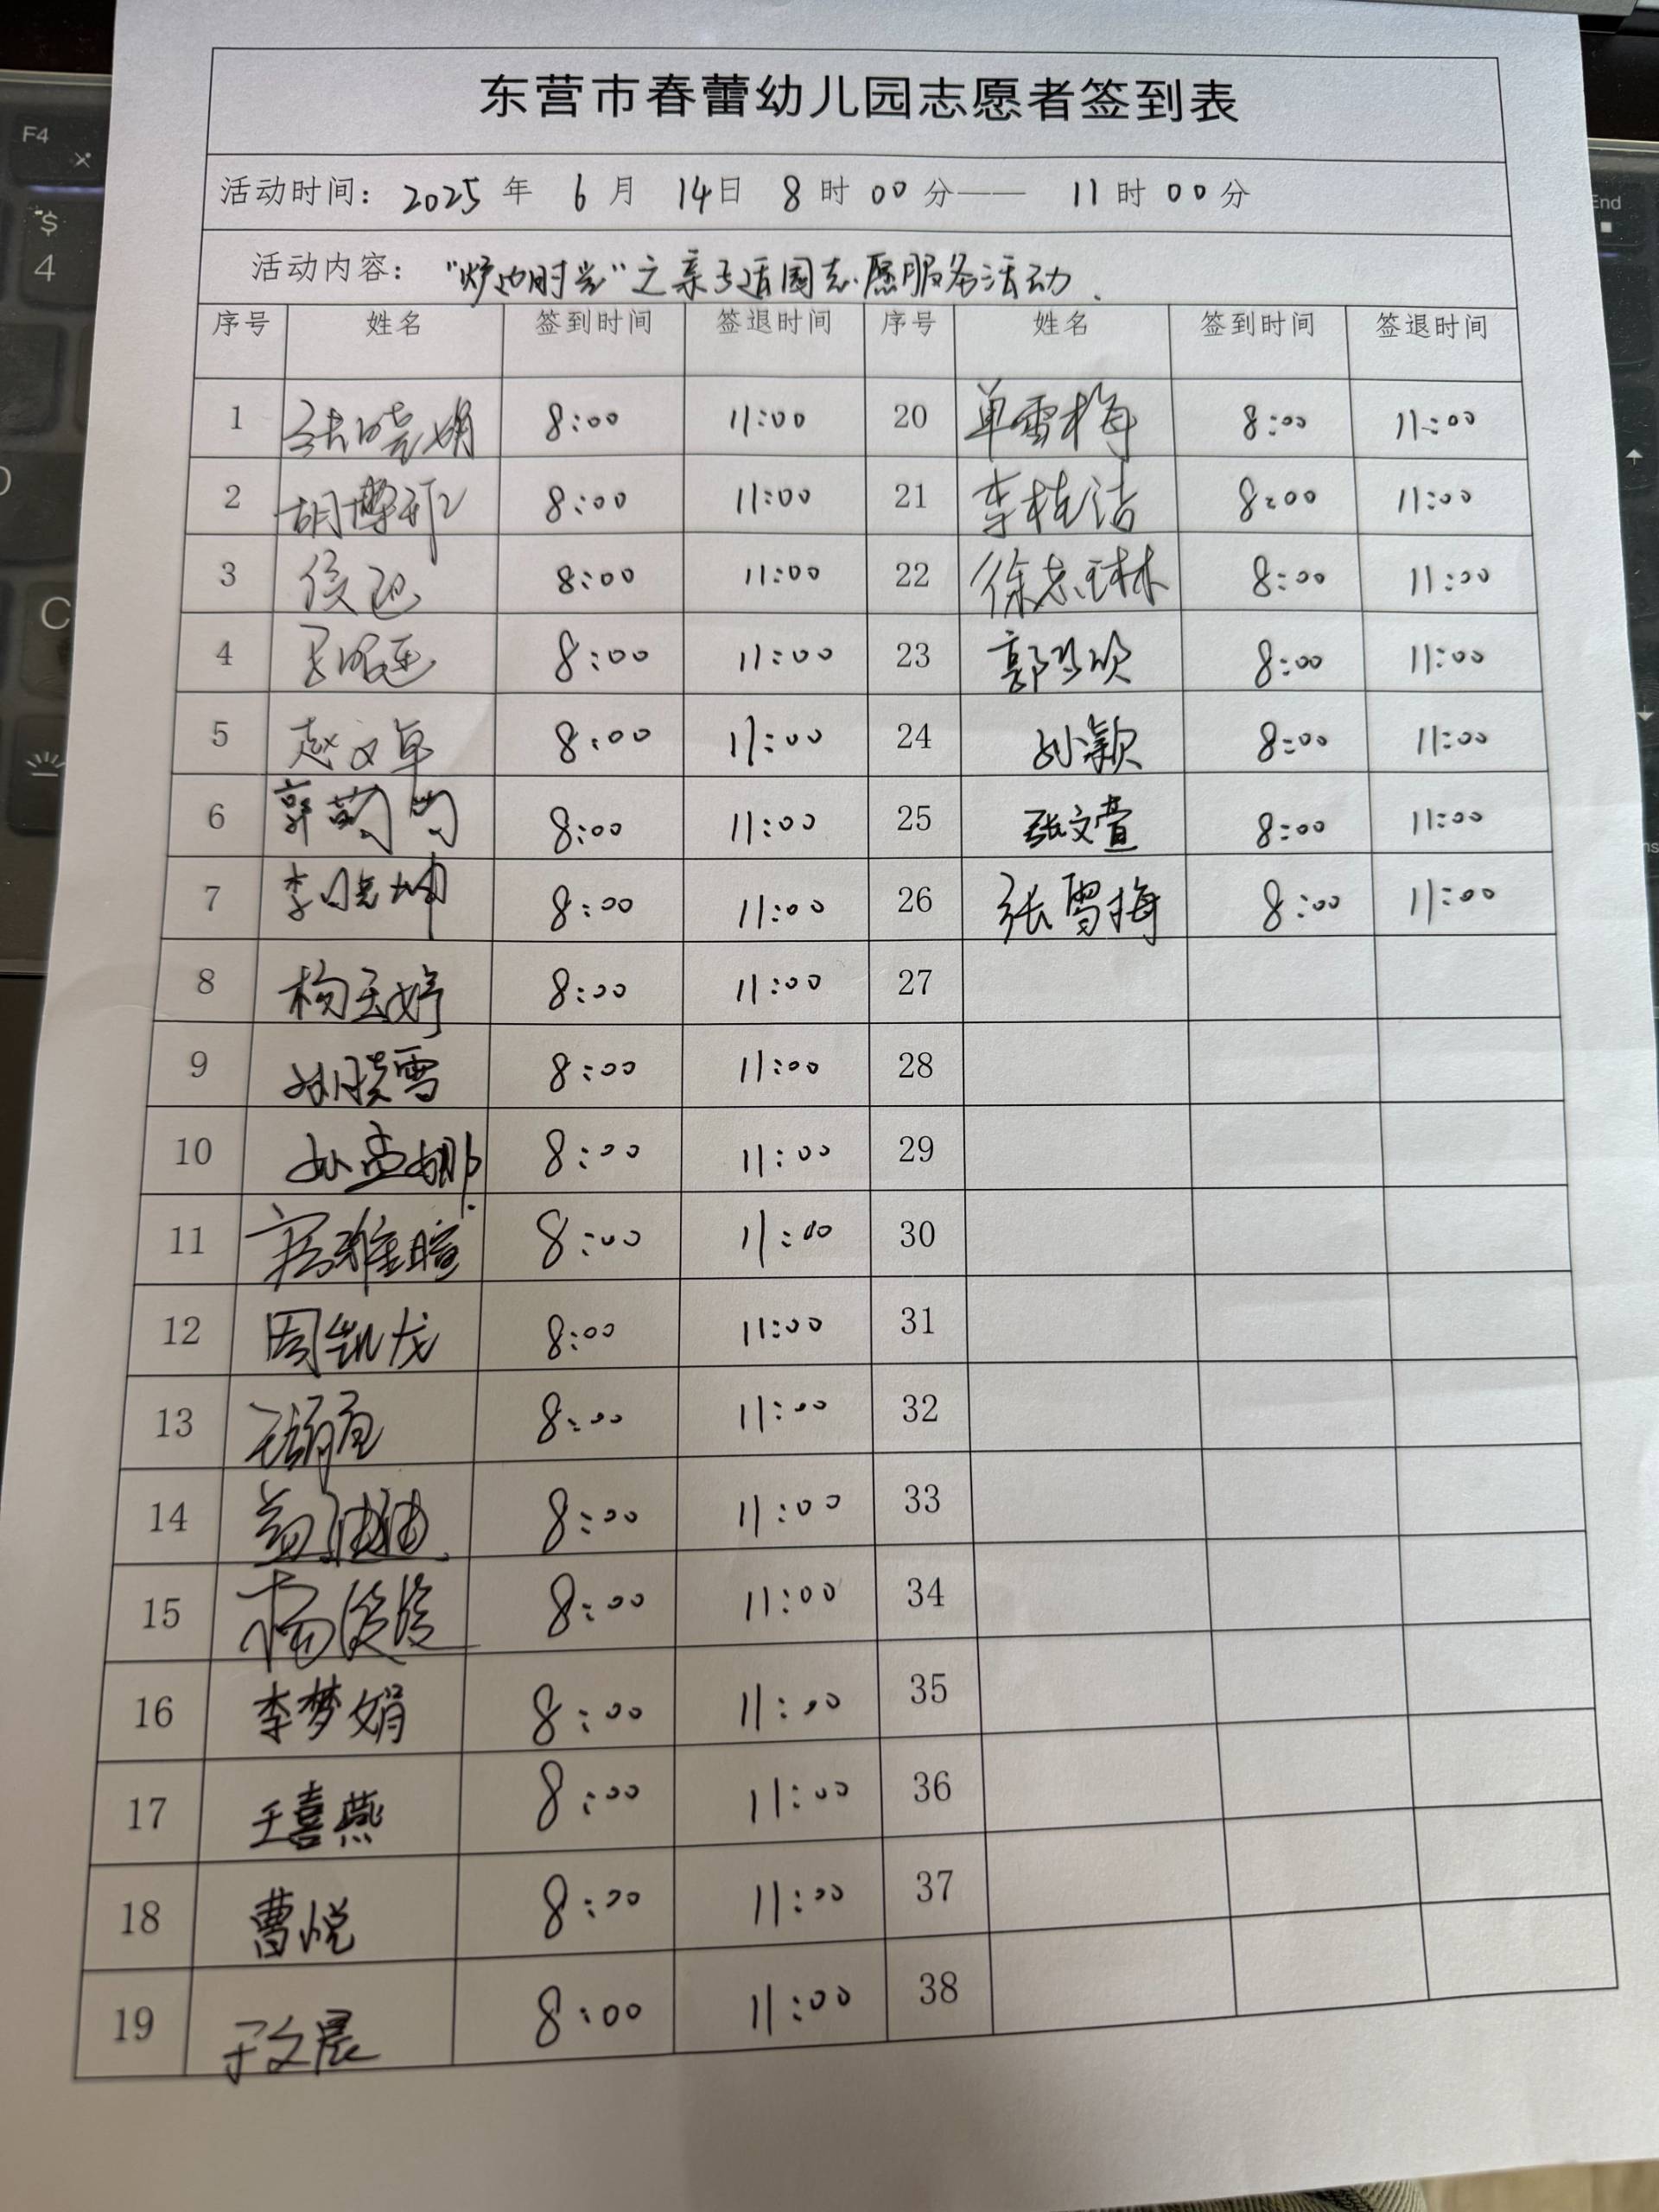 东营市春蕾幼儿园志愿者签到表
活动时间： 2025 年 6 月 14日 8 时 00 分—— 11 时 00 分
活动内容： 时光"之亲子运园志愿服务活动.
序号 姓名 签到时间 签退时间 序号 姓名 签到时间 签退时间
1 张晓娟 8:00 11:00 20 单雪梅 8:00 11:00
2 8:00 11:00 21 李桂洁 8:00 11:00
3 8:00 11:00 22 徐志琳 8:00 11:00
4 8:00 11:00 23 8:00 11:00
5 赵文卓 8:00 11:00 24 孙颖 8:00 11:00
6 8:00 11:00 25 张文萱 8:00 11:00
7 李晓坤 8:00 11:00 26 张雪梅 8:00 11:00
8 杨玉婷 8:00 11:00 27
9 孙晓雪 8:00 11:00 28
10 孙孟娜 8:00 11:00 29
11 8:00 11:00 30
12 周凯龙 8:00 11:00 31
13 8:00 11:00 32
14 8:00 11:00 33
15 8:00 11:00 34
16 李梦娟 8:00 11:00 35
17 王喜燕 8:00 11:00 36
18 曹悦 8:00 11:00 37
19 于文晨 8:00 11:00 38
F4
$
4
C
End